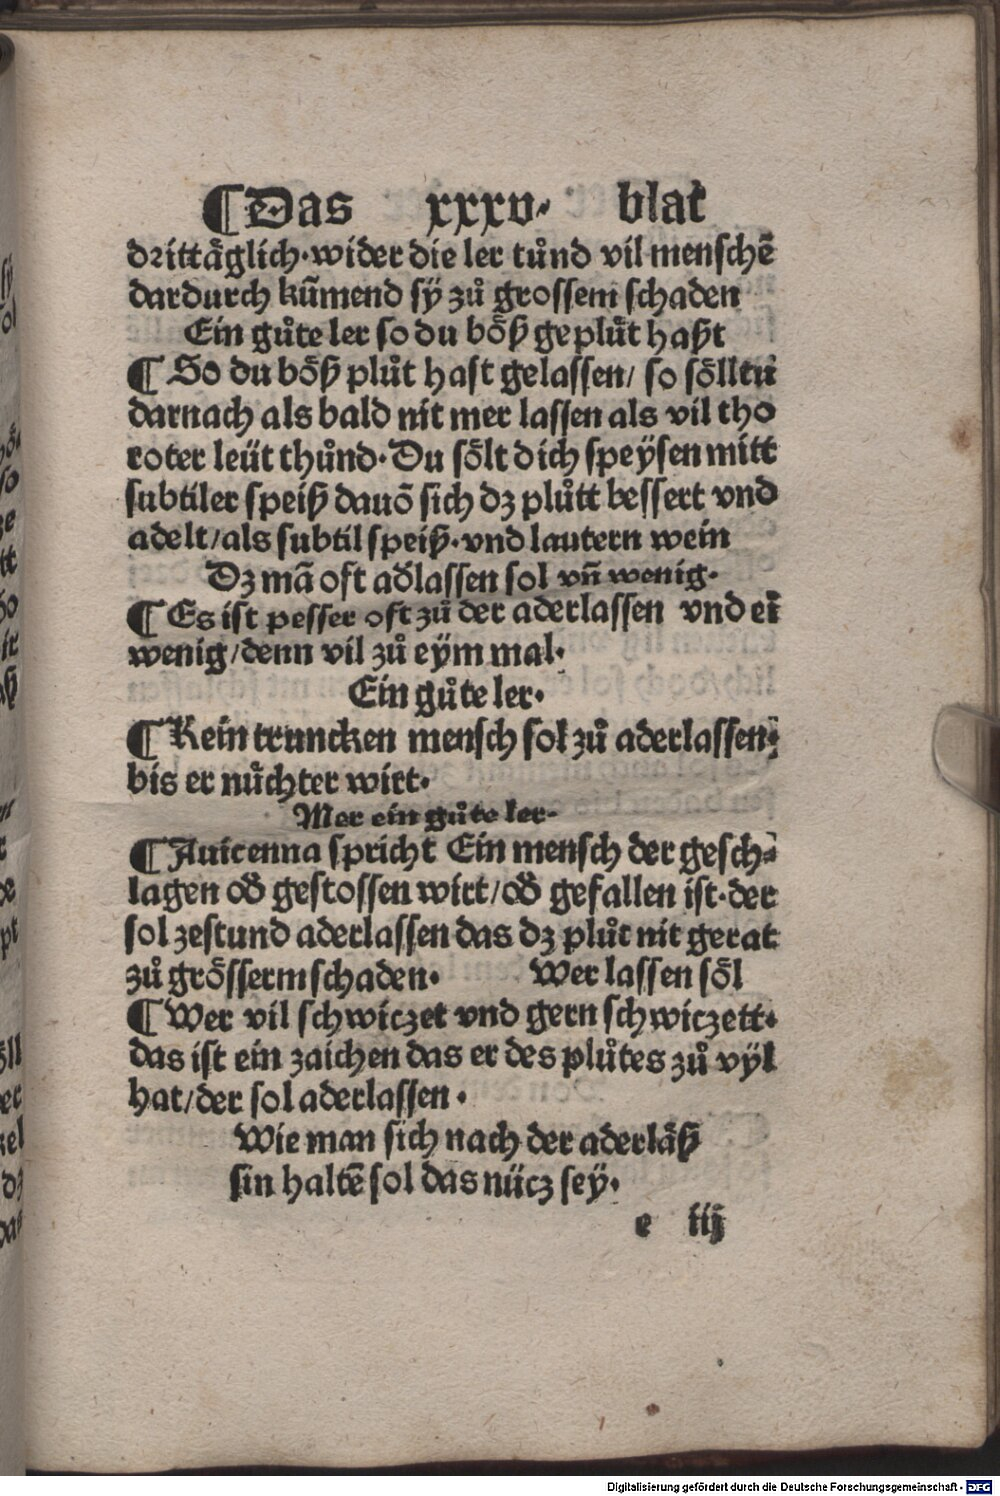 ¶ Das xxxv· blat
drittåglich·wider die ler tůnd vil menschē
dardurch kūmend sÿ zů grossem schaden
Ein gůte ler so du bőß geplůt haßt
¶ So du bőß plůt hast gelassen/ so sőlltu
darnach als bald nit mer lassen als vil tho
roter leüt thůnd·Du sőlt dich speÿsen mitt
subtiler speiß dauō sich dz plůtt bessert vnd
adelt/als subtil speiß·vnd lautern wein
Dz mā oft ad̕lassen sol vn̄ wenig·
¶ Es ist pesser oft zů der aderlassen vnd eī
wenig/denn vil zů eÿm mal·
Ein gůte ler·
¶ Kein truncken mensch sol zů aderlassen·
bis er nůchter wirt·
Mer ein gůte ler·
¶ Auicenna spricht Ein mensch der gesch⸗
lagen od̕ gestossen wirt/od̕ gefallen ist·der
sol zestund aderlassen das dz plůt nit gerat
zů grősserm schaden· Wer lassen sől
¶ Wer vil schwiczet vnd gern schwiczett·
das ist ein zaichen das er des plůtes zů vÿl
hat/der sol aderlassen·
Wie man sich nach der aderlåß
sin haltē sol das nücz seÿ·
e iij
Digitalisierung gefördert durch die Deutsche Forschungsgemeinschaft - DFG